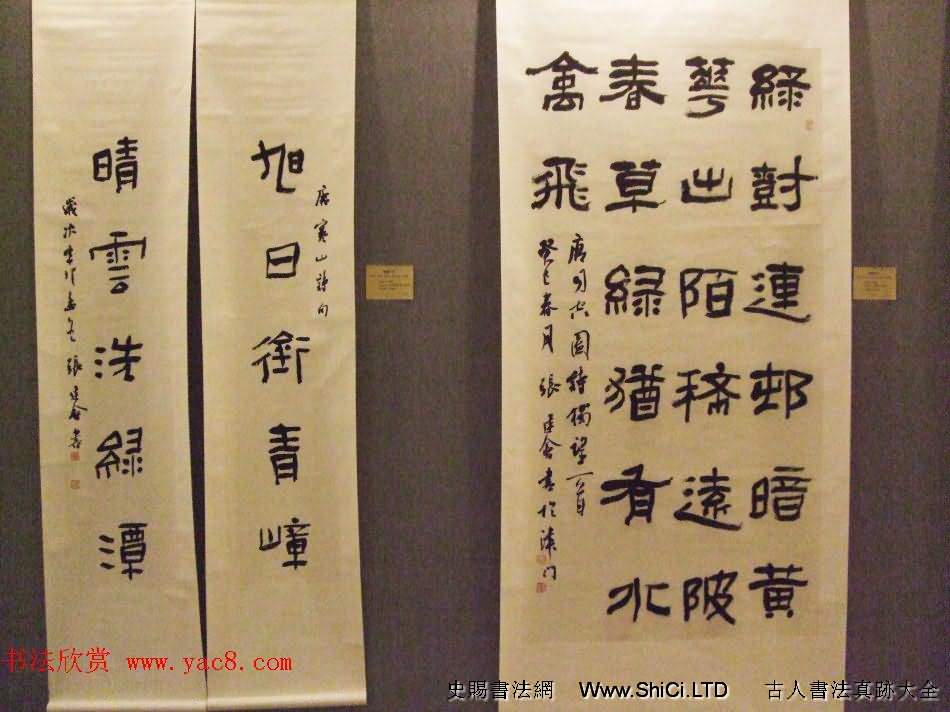 綠尌連邨暗黃
華出陌稀遠陂
春草綠猶有水
禽飛
唐司空圖詩獨望一首
癸巳春月張建會書於津門
唐寒山詩句
旭日銜青嶂
晴雲洗綠潭
歲次 張建會書
书法欣赏 www.yac8.com
史賜書法網 Www.ShiCi.LTD 古人書法真跡大全